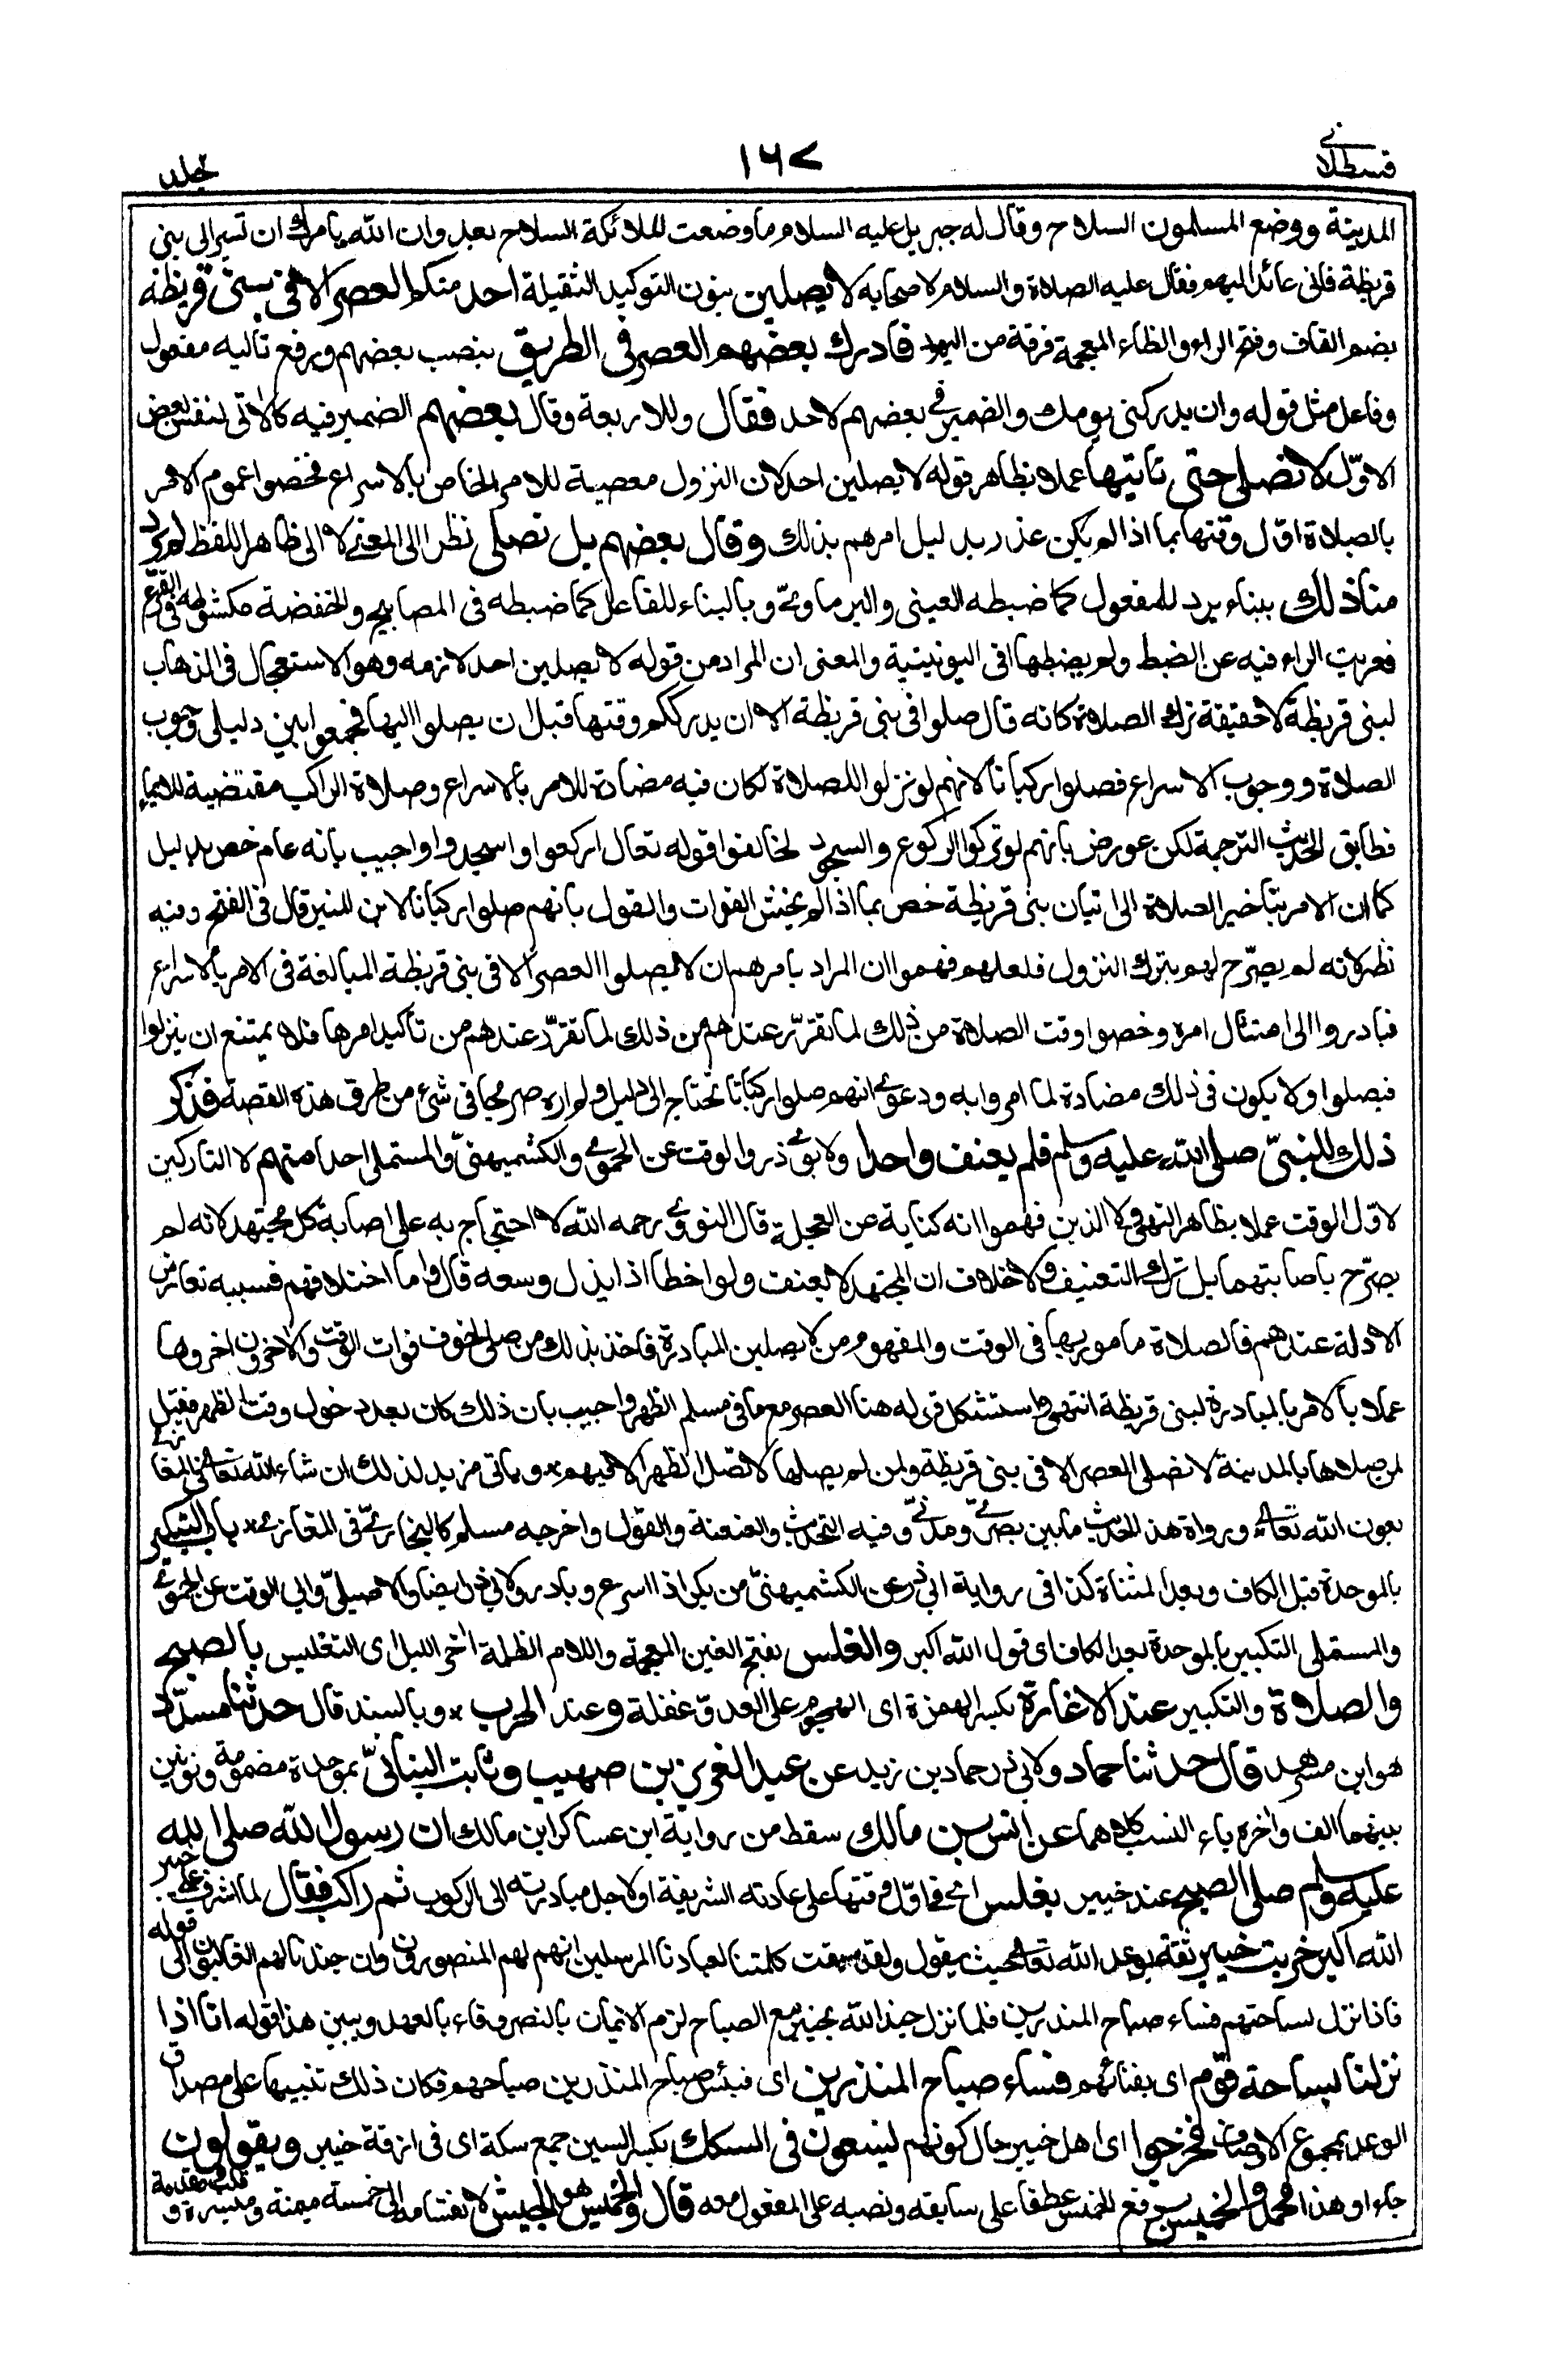 قسطلانى
١٦٧
جلد
المدينة ووضع المسلمون السلاح وقال له جبريل عليه السلام ما وضعت الملائكة السلاح بعد وان الله يامرك ان تسير الى بنى
قريظة فانى عائد اليهم فقال عليه الصلاة والسلام لاصحابه لا يصلين بنون التوكيد الثقيلة احد منكم العصر الا فى بنى قريظة
بضم القاف وفتح الراء والظاء المعجمة فرقة من اليهود فادرك بعضهم العصر فى الطريق بنصب بعضهم ورفع تاليه مفعول
وفاعل مثل قوله وان يدركنى يومك والضمير فى بعضهم لاحد فقال وللاربعة وقال بعضهم الضمير فيه كالاتى لنفس بعض
الاوّل لا نصلى حتى ناتيها عملا بظاهر قوله لا يصلين احد لان النزول معصية للامر الخاص بالاسراع فخصوا عموم الامر
بالصلاة اوّل وقتها بما اذا لم يكن عذر بدليل امرهم بذلك وقال بعضهم بل نصلى نظرا الى المعنى لا الى ظاهر اللفظ لم يرد
منا ذلك ببناء يرد للمفعول كما ضبطه العينى والبرماوى وبالبناء للفاعل كما ضبطه فى المصابيح والخفضة مكشوطة فى الفرع
فعريت الراء فيه عن الضبط ولم يضبطها فى اليونينية والمعنى ان المراد من قوله لا يصلين احد لازمه وهو الاستعجال فى الذهاب
لبنى قريظة لا حقيقة ترك الصلاة كانه قال صلوا فى بنى قريظة الا ان يدرككم وقتها قبل ان يصلوا اليها فجمعوا بين دليلى وجوب
الصلاة ووجوب الاسراع فصلوا ركبانا لانهم لو نزلوا للصلاة لكان فيه مضادة للامر بالاسراع وصلاة الراكب مقتضية للايماء
فطابق الحديث الترجمة لكن عورض بانهم لو تركوا الركوع والسجود لخالفوا قوله تعال اركعوا واسجدوا واجيب بانه عام خص بدليل
كما ان الامر بتاخير الصلاة الى اتيان بنى قريظة خص بما اذا لم يخش الفوات والقول بانهم صلوا ركبانا لابن المنير قال فى الفتح وفيه
نظر لانه لم يصرّح لهم بترك النزول فلعلهم فهموا ان المراد بامرهم ان لا يصلوا العصر الا فى بنى قريظة المبالغة فى الامر بالاسراع
فبادروا الى امتثال امره وخصوا وقت الصلاة من ذلك لما تقرّر عندهم من ذلك لما تقرّر عندهم من تأكيد امرها فلا يمتنع ان ينزلوا
فيصلوا ولا يكون فى ذلك مضادة لما امروا به ودعوى انهم صلوا ركبانا تحتاج الى دليل ولم اره صريحا فى شئ من طرق هذه القصة فذكر
ذلك للنبىّ صلى الله عليه وسلم فلم يعنف واحدا ولابوى ذر والوقت عن الحموى والكشميهنىّ والمستملى احدا منهم لا التاركين
لاوّل الوقت عملا بظاهر النهى ولا الذين فهموا انه كناية عن العجلة قال النووى رحمه الله لا احتجاج به على اصابة كل مجتهد لانه لم
يصرّح باصابتهما بل ترك التعنيف ولا خلاف ان المجتهد لا يعنف ولو اخطا اذا بذل وسعه قال واما اختلافهم فسببه تعارض
الادلة عندهم فالصلاة مامور بها فى الوقت والمفهوم من لا يصلين المبادرة فاخذ بذلك من صلى لخوف فوات الوقت والاخرون اخروها
عملا بالامر بالمبادرة لبنى قريظة انتهى واستشكل قوله هنا العصر مع ما فى مسلم الظهر واجيب بان ذلك كان بعد دخول وقت الظهر فقيل
لمن صلاها بالمدينة لا تصلى العصر الا فى بنى قريظة ولمن لم يصلها لا تصل الظهر الا فيهم * وياتى مزيد لذلك ان شاء الله تعالى فى المغازى
بعون الله تعالى ورواة هذا الحديث ما بين بصرىّ ومدنىّ وفيه التحديث والعنعنة والقول واخرجه مسلم كالبخارىّ فى المغازى * باب التبكير
بالموحدة قبل الكاف وبعد المثناة كذا فى رواية ابى ذر عن الكشميهنىّ من بكر اذا اسرع وبادر ولابى ذر ايضا والاصيلىّ وابى الوقت عن الحموى
والمستملى التكبير بالموحدة بعد الكاف اى قول الله اكبر والغلس بفتح الغين المعجمة واللام الظلمة اخر الليل اى التغليس بالصبح
والصلاة والتكبير عند الاغارة بكسر الهمزة اى الهجوم على العدوّ غفلة وعند الحرب * وبالسند قال حدثنا مسدّد
هو ابن مسرهد قال حدثنا حماد ولابى ذر حماد بن زيد عن عبد العزيز بن صهيب وثابت البنانىّ بموحدة مضمومة ونونين
بينهما الف واخره ياء النسب كلاهما عن انس بن مالك سقط من رواية ابن عساكر ابن مالك ان رسول الله صلى الله
عليه وسلم صلى الصبح عند خيبر بغلس اى فى اوّل وقتها على عادته الشريفة او لاجل مبادرته الى الركوب ثم ركب فقال لما اشرف على خيبر
الله اكبر خربت خيبر ثقة بوعد الله تعالى حيث يقول ولقد سبقت كلمتنا لعبادنا المرسلين انهم لهم المنصورون وان جندنا لهم الغالبون الى قوله
فاذا نزل بساحتهم فساء صباح المنذرين فلما نزل جند الله بخيبر مع الصباح لزم الايمان بالنصر وفاء بالعهد ويبين هذا قوله انا اذا
نزلنا بساحة قوم اى بفنائهم فساء صباح المنذرين اى فبئس صباح المنذرين صباحهم فكان ذلك تنبيها على مصداق
الوعد بمجموع الاوصاف فخرجوا اى اهل خيبر حال كونهم يسعون فى السكك بكسر السين جمع سكة اى فى ازقة خيبر ويقولون
جاء او هذا محمد والخميس برفع الخميس عطفا على سابقه ونصبه على المفعول معه قال والخميس هو الجيش لانقسامه الى خمسة ميمنة وميسرة وقلب ومقدمة و